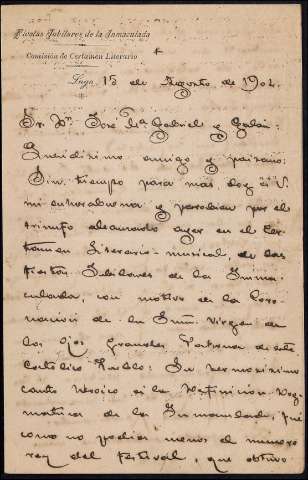 Fiestas Jubilares de la Inmaculada
Comisión de Certamen Literario
+
Lugo 15 de Agosto de 1904.
Sr. Dn. José Mª Gabriel y Galán:
Queridísimo amigo y paisano:
Sin tiempo para más doy á V.
mi enhorabuena y parabien por el
triunfo alcanzado ayer en el Cer-
tamen Literario-musical, de las
Fiestas Jubilares de la Inma-
culada, con motivo de la Coro-
nación de la Sma. Virgen de
los Ojos Grandes Patrona de este
Católico Pueblo: Su hermosísimo
canto heróico á la Definición Dog-
mática de la Inmaculada, fué
como no podía menos el numero
rey del festival, que obtuvo